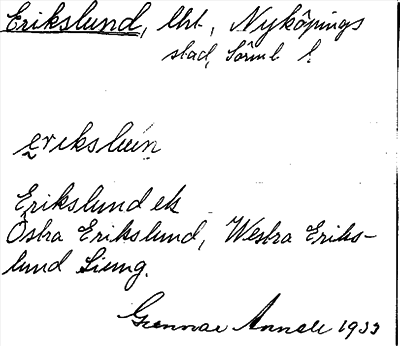 Erikslund, lht., Nyköpings
stad, Sörml. l.
erikslun
Erikslund ek
Östra Erikslund, Westra Eriks-
lund Liung.
Gunnar Annell 1933